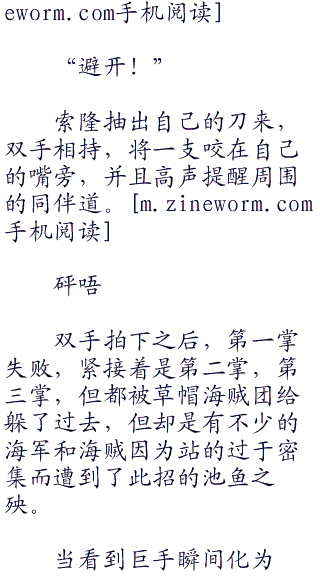 eworm.com手机阅读]
“避开！”
索隆抽出自己的刀来，
双手相持，将一支咬在自己
的嘴旁，并且高声提醒周围
的同伴道。[m.zineworm.com
手机阅读]
砰唔
双手拍下之后，第一掌
失败，紧接着是第二掌，第
三掌，但都被草帽海贼团给
躲了过去，但却是有不少的
海军和海贼因为站的过于密
集而遭到了此招的池鱼之
殃。
当看到巨手瞬间化为